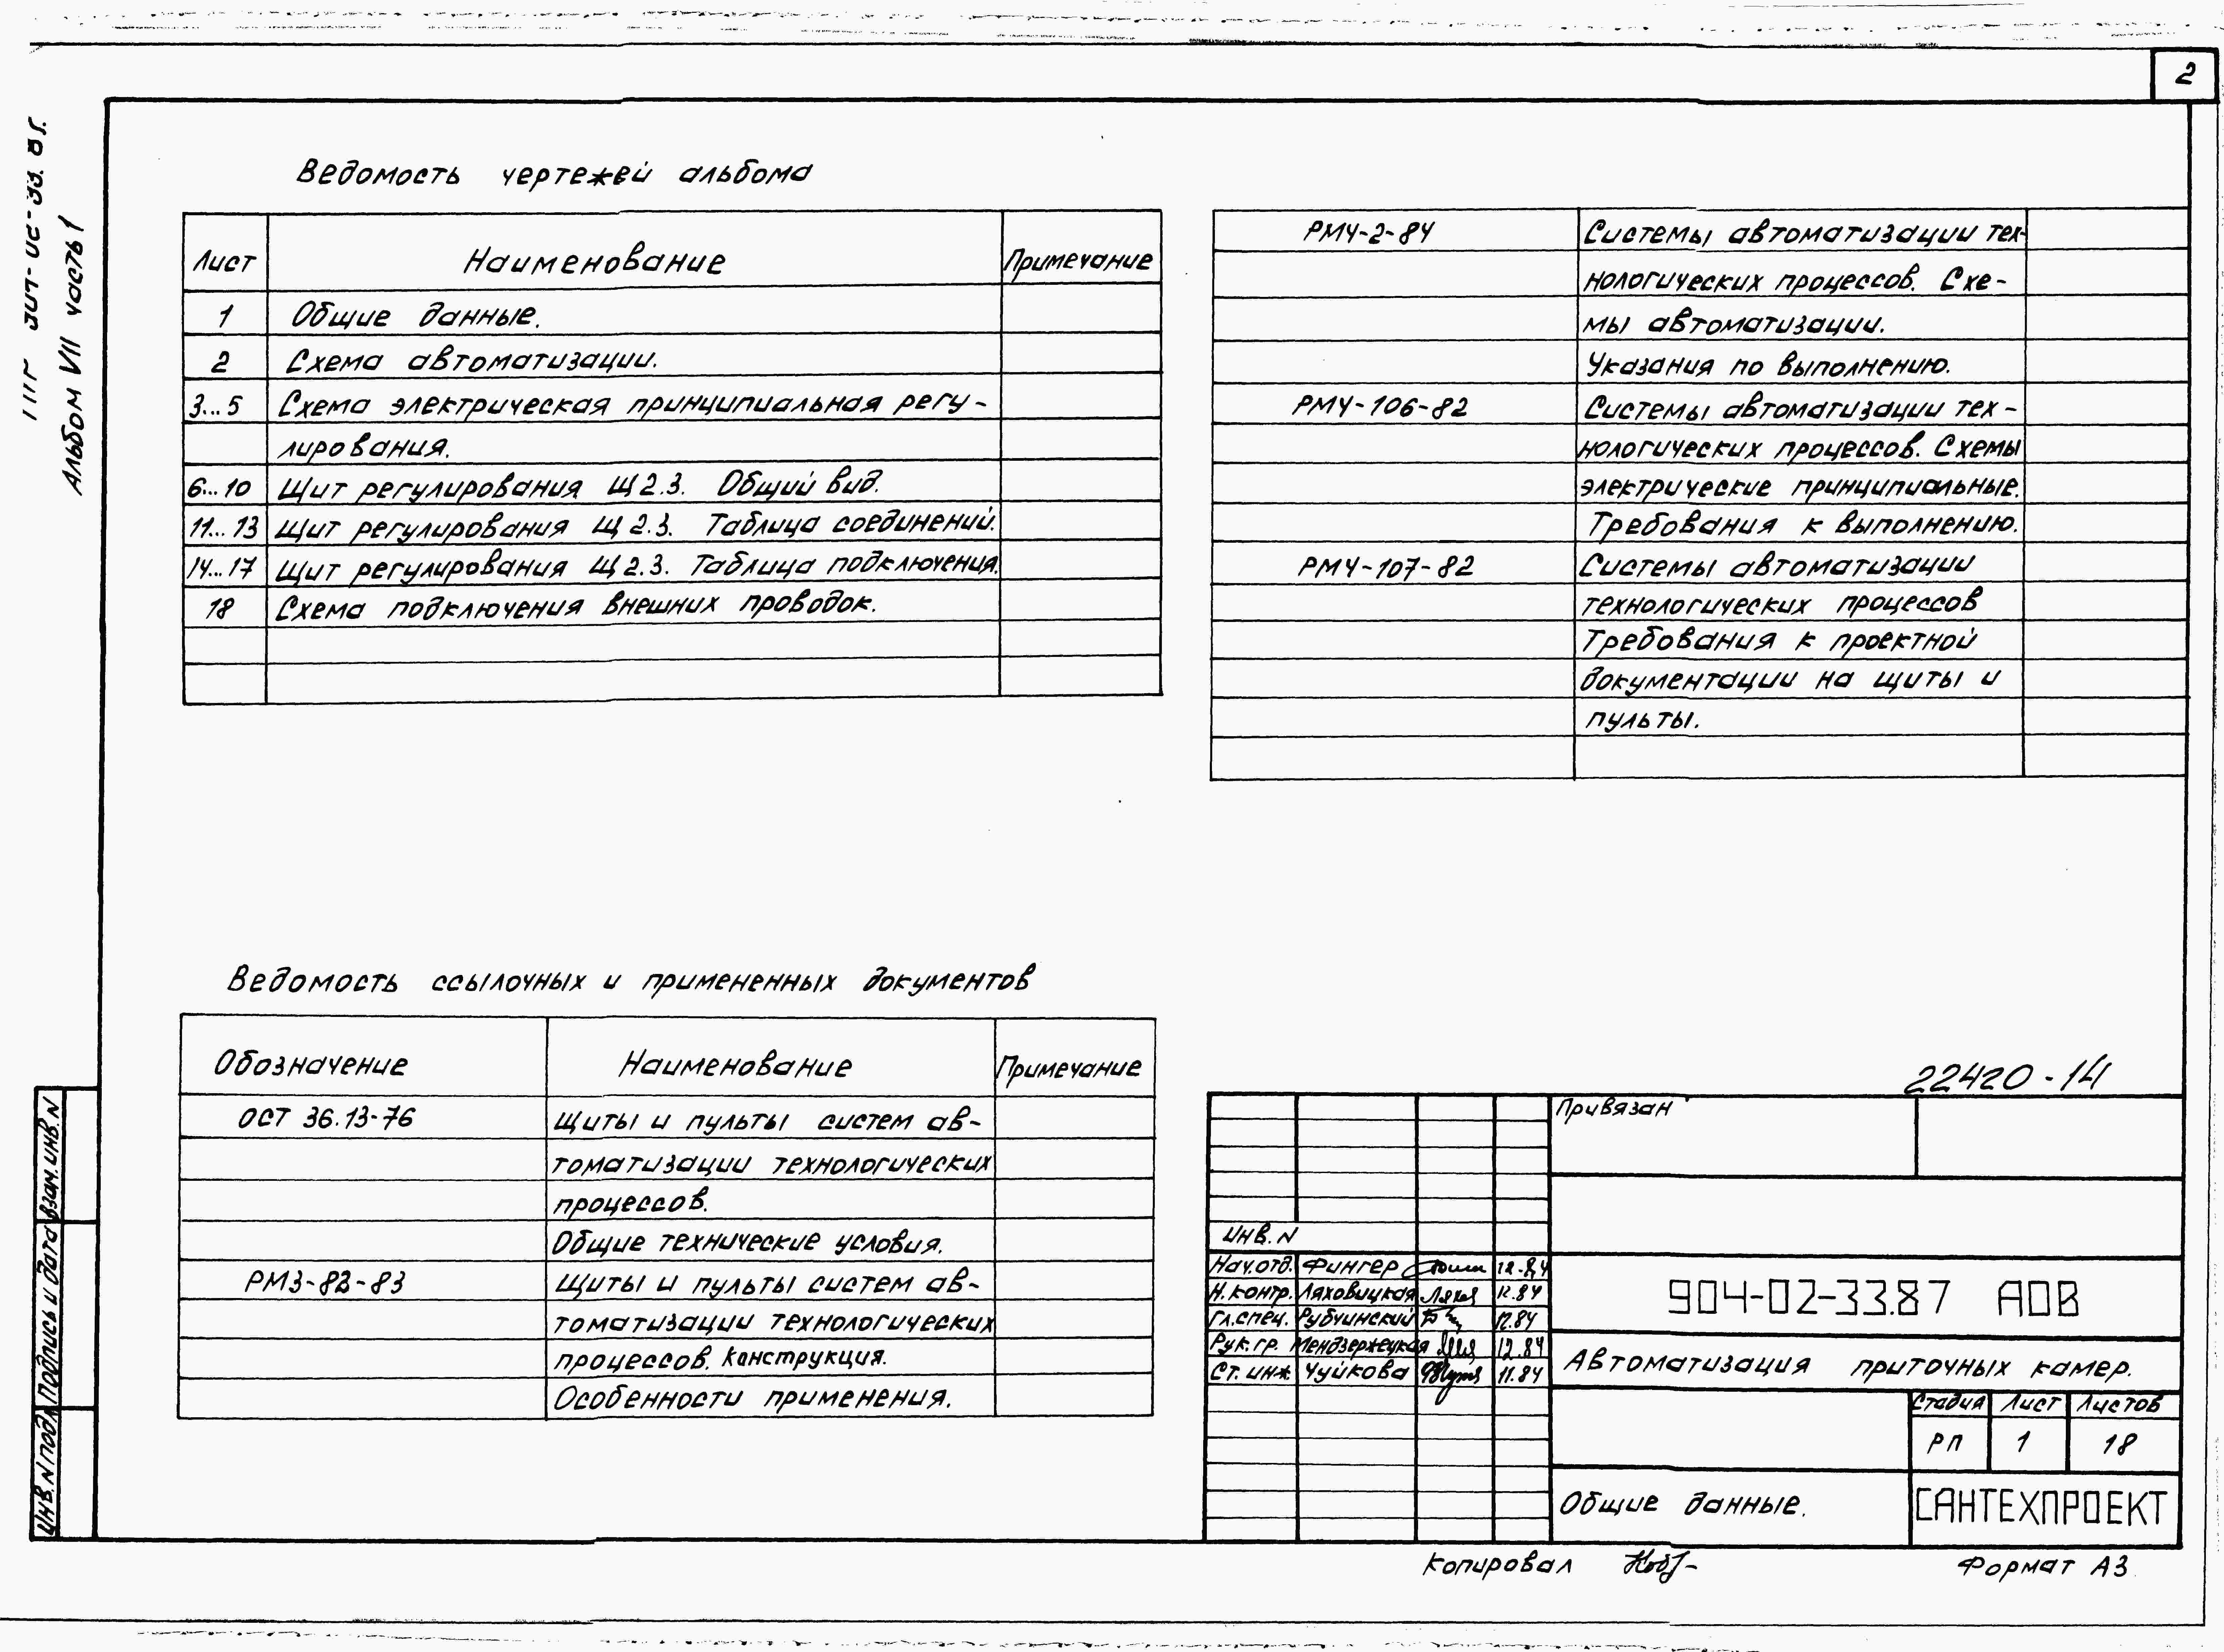 2
Альбом VII часть 1
Ведомость чертежей альбома
Лист Наименование Примечание
1 Общие данные.
2 Схема автоматизации.
3...5 Схема электрическая принципиальная регу-
лирования.
6...10 Щит регулирования Щ2.3. Общий вид.
11...13 Щит регулирования Щ2.3. Таблица соединений.
14...17 Щит регулирования Щ2.3. Таблица подключения.
18 Схема подключения внешних проводок.
РМ4-2-84 Системы автоматизации тех-
нологических процессов. Схе-
мы автоматизации.
Указания по выполнению.
РМ4-106-82 Системы автоматизации тех-
нологических процессов. Схемы
электрические принципиальные.
Требования к выполнению.
РМ4-107-82 Системы автоматизации
технологических процессов
Требования к проектной
документации на щиты и
пульты.
Ведомость ссылочных и примененных документов
Обозначение Наименование Примечание
ОСТ 36.13-76 Щиты и пульты систем ав-
томатизации технологических
процессов.
Общие технические условия.
РМ3-82-83 Щиты и пульты систем ав-
томатизации технологических
процессов. Конструкция.
Особенности применения.
22420-14
Привязан
Инв. N
Нач.отд. Фингер 12.84
Н.контр. Ляховицкая 12.84
Гл.спец. Рубчинский 12.84
Рук.гр. Мендзержецкая 12.84
Ст.инж. Чуйкова 11.84
904-02-33.87 АОВ
Автоматизация приточных камер.
Стадия Лист Листов
РП 1 18
Общие данные.
САНТЕХПРОЕКТ
Взам.инв.N
Подпись и дата
Инв.N подл
Копировал
Формат А3